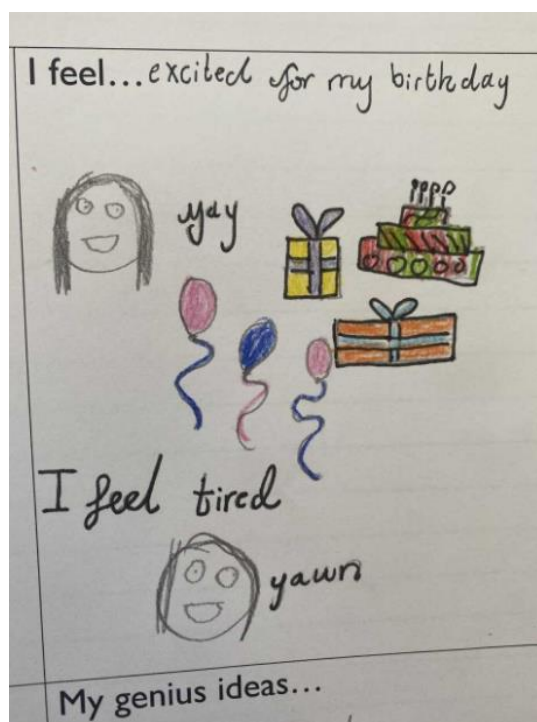 I feel... excited for my birthday
yay
I feel tired
yawn
My genius ideas...